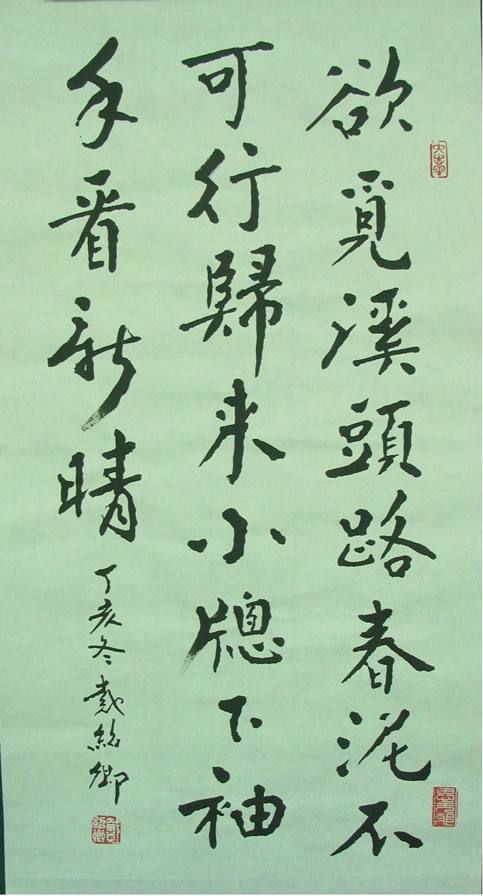 欲覓溪頭路春泥不
可行歸来小牎下袖
手看新晴
丁亥冬戴紹卿